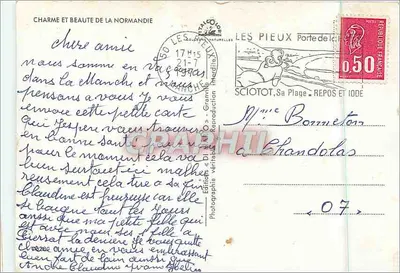 CHARME ET BEAUTE DE LA NORMANDIE
chère amie
nous somme en vacances
dans la Manche et nous
pensons a vous Je vous
envoie cette petite carte
que J'espère vous trouvera
en bonne santé
pour le moment cela va
bien surtout ici malheu
reusement cela tire a sa fin
Claudine est heureuse car elle
se baigne tout les Jours
ainsi que ma petite fille qui
est avec nous
la dernière
chère amie en vous embrassant
bien fort de loin ainsi que
Claudine
50 LES PIEUX
17H15
21-7
MANCHE
LES PIEUX Porte de la
SCIOTOT, Sa Plage : REPOS ET IODE
0,50
POSTES
REPUBLIQUE FRANCAISE
Mme Bonneton
Chandolas
07.
CPAPHTI
Photographie véritable - Reproduction interdite